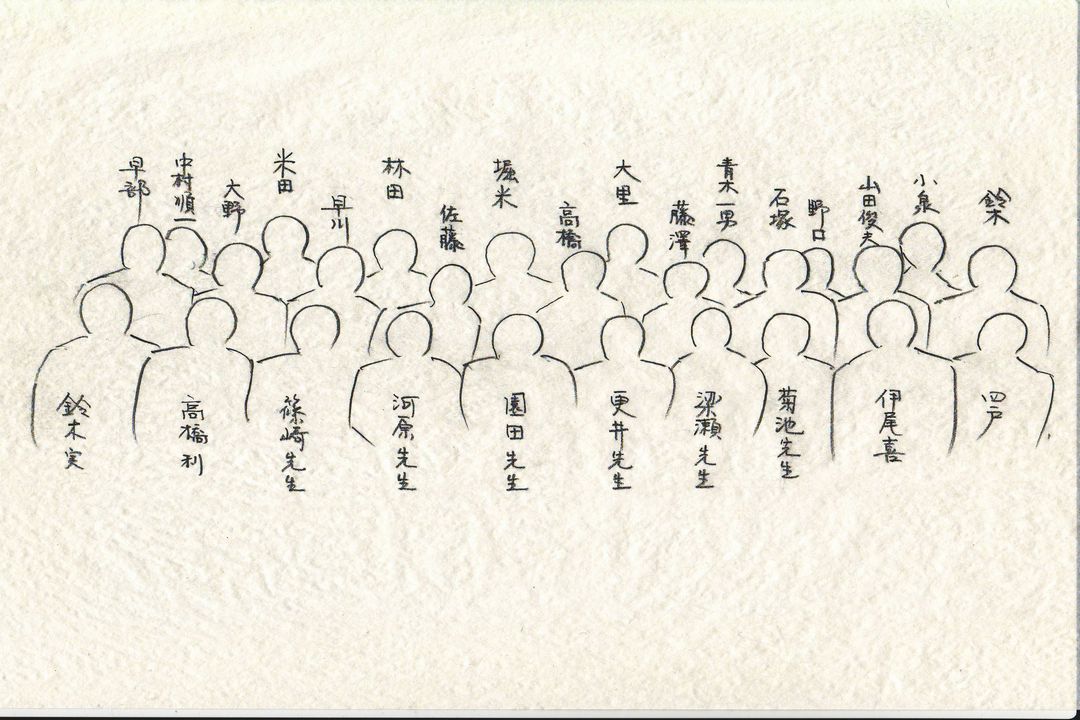 早部
中村順一
大野
米田
早川
林田
佐藤
堀米
高橋
大里
藤澤
青木一男
石塚
野口
山田俊夫
小泉
鈴木
鈴木実
高橋利
篠崎先生
河原先生
園田先生
更井先生
梁瀬先生
菊池先生
伊尾喜
四戸